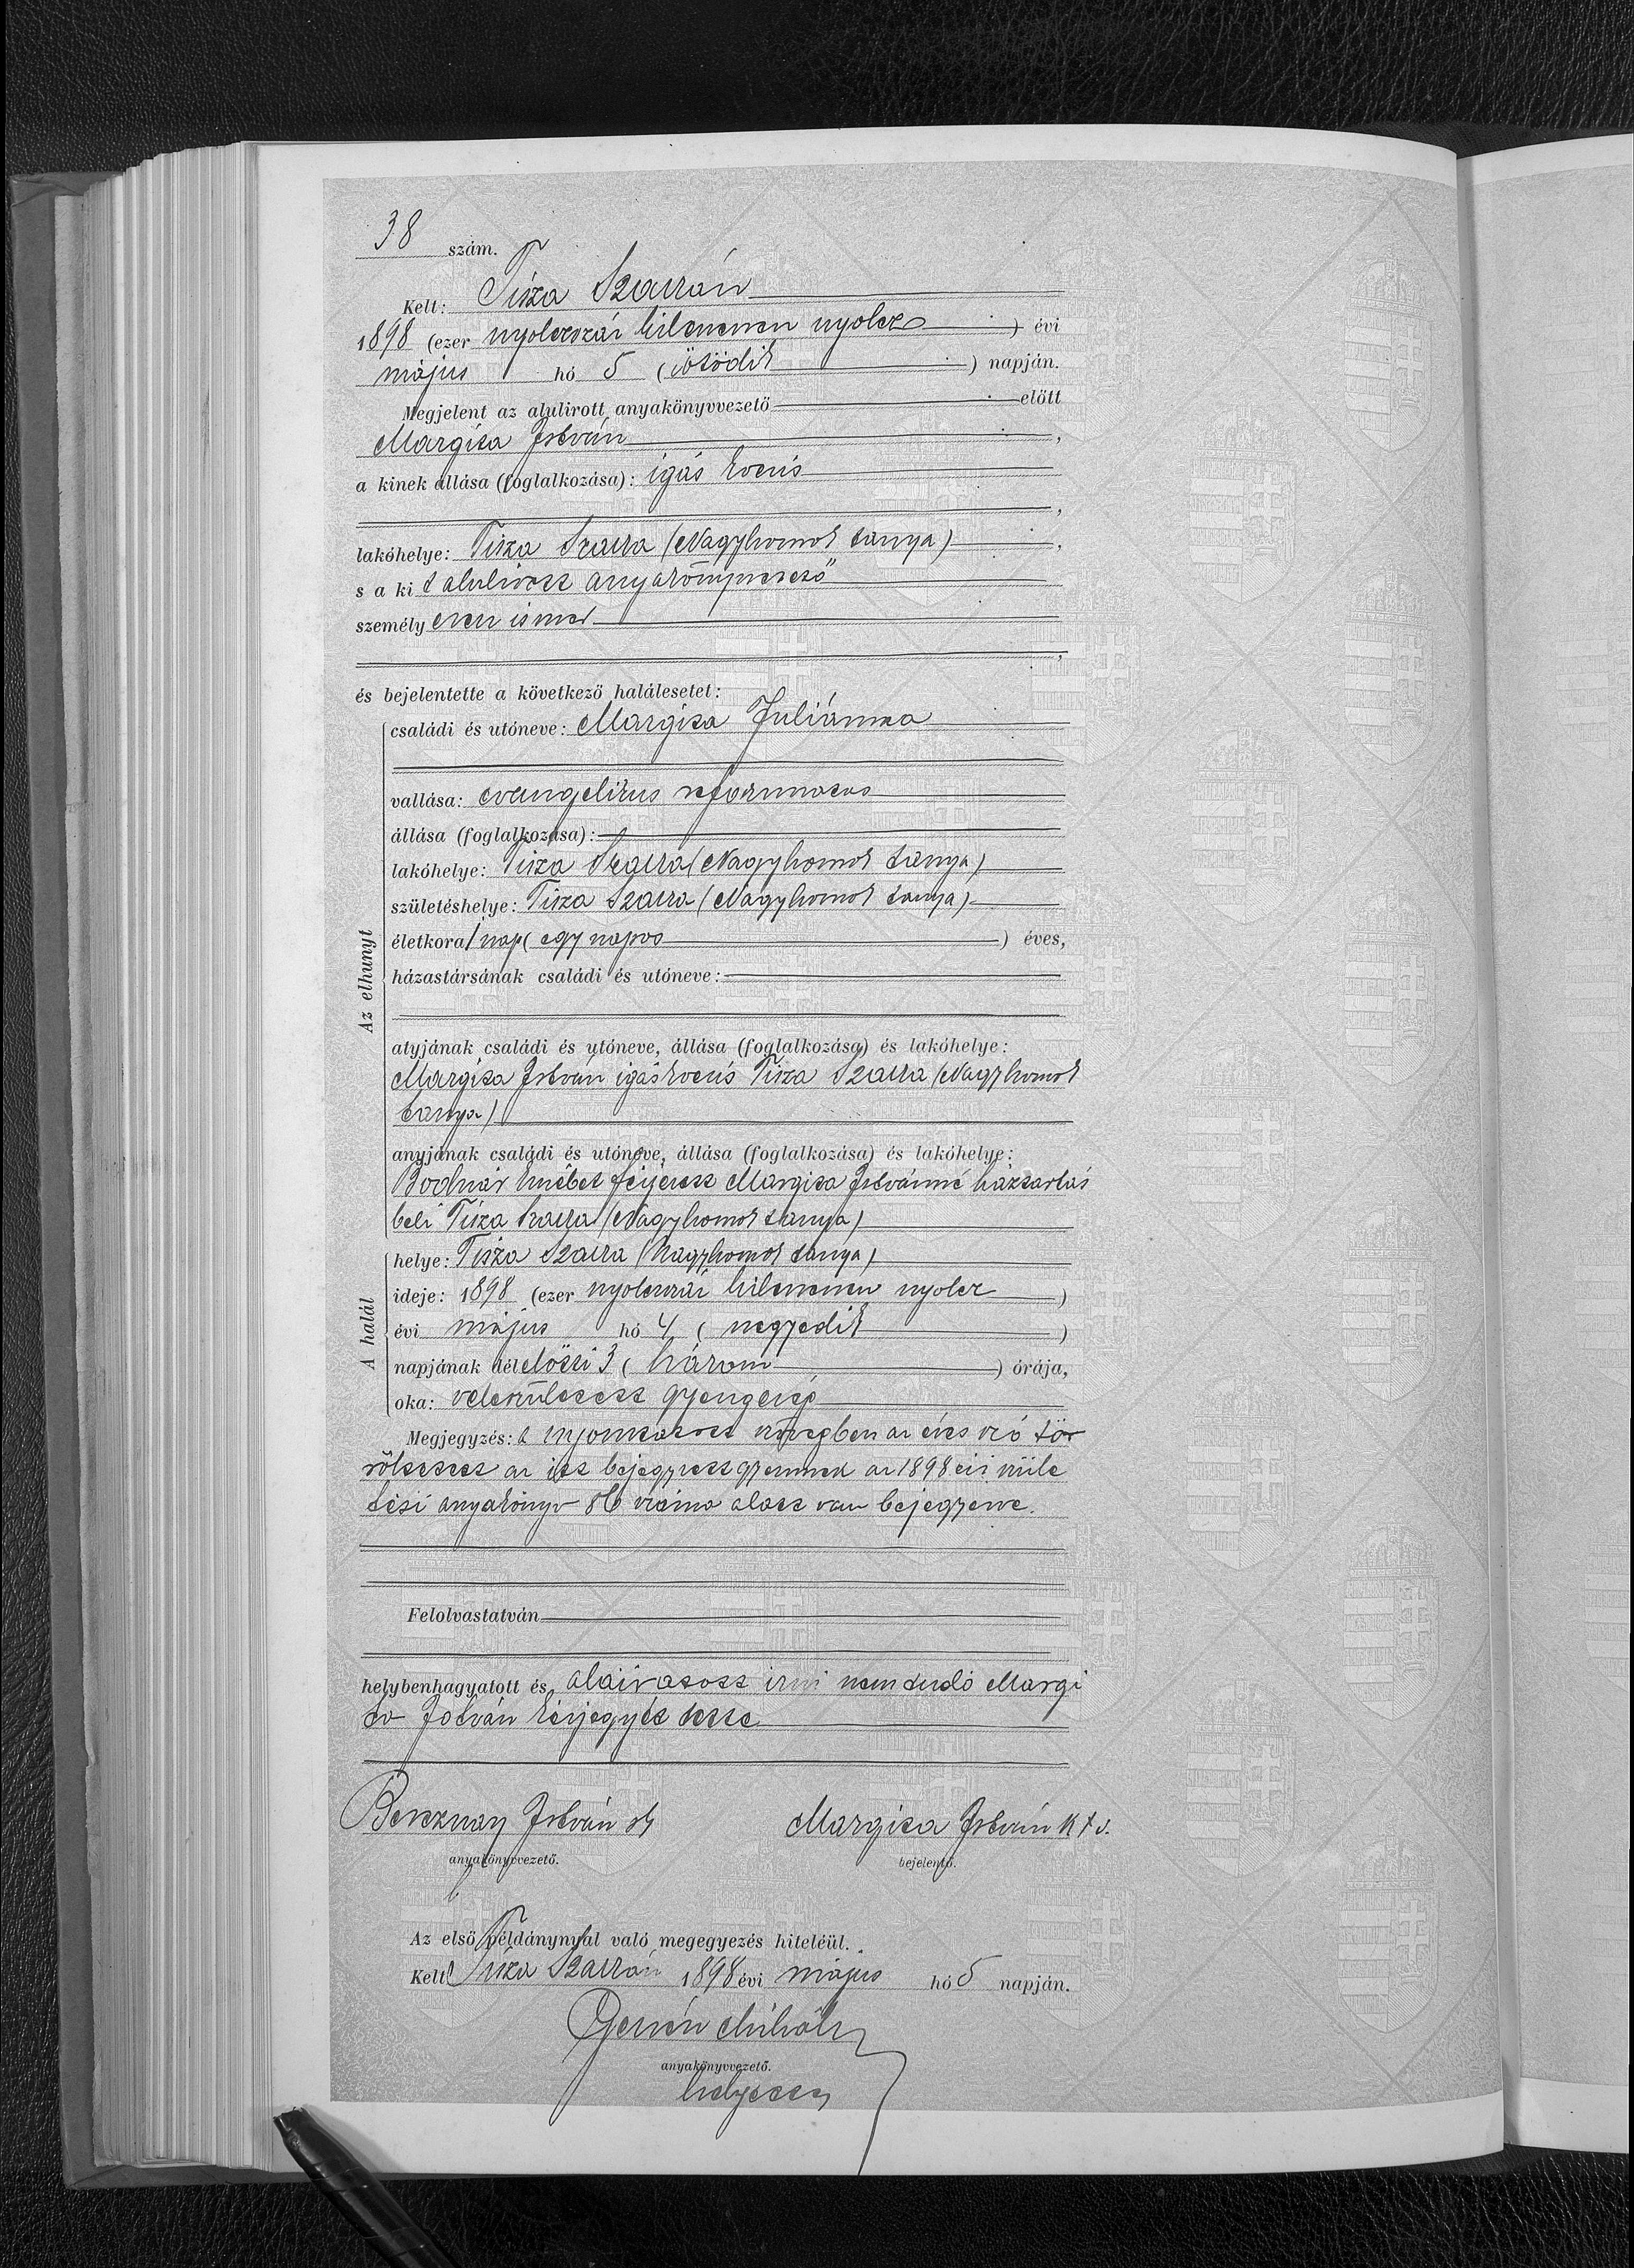 38 szám.
Kelt: Tisza Szalkán
1898 (ezer nyolczszáz kilenczven nyolcz) évi
május hó 5 (ötödik) napján.
Megjelent az alulirott anyakönyvvezető előtt
Margita István,
a kinek állása (foglalkozása): igás kocsis
,
lakóhelye: Tisza Szalka (Nagyhomok tanya),
s a kit alulirott anyakönyvvezető
személyesen ismer
,
és bejelentette a következő halálesetet:
Az elhunyt
családi és utóneve: Margita Juliánna
vallása: evangelikus reformatus
állása (foglalkozása):
lakóhelye: Tisza Szalka (Nagyhomok tanya)
születéshelye: Tisza Szalka (Nagyhomok tanya)
életkora 1 nap (egy napos) éves,
házastársának családi és utóneve:
atyjának családi és utóneve, állása (foglalkozása) és lakóhelye:
Margita István igás kocsis Tisza Szalka (Nagyhomok
tanya)
anyjának családi és utóneve, állása (foglalkozása) és lakóhelye:
Bodnár Ersébet férjezett Margita Istvánné háztartás
beli Tisza Szalka (Nagyhomok tanya)
A halál
helye: Tisza Szalka (Nagyhomok tanya)
ideje: 1898 (ezer nyolczszáz kilenczven nyolcz)
évi május hó 4 (negyedik)
napjának délelőtti 3 (három) órája,
oka: veleszületett gyengeség
Megjegyzés: A nyomtatott szövegben az éves szó tör
röltetett az itt bejegyzett gyermek az 1898 évi szüle
tési anyakönyv 86 száma alatt van bejegyezve.
Felolvastatván
helybenhagyatott és aláiratott irni nem tudó Margi
ta István kézjegyét tette
Bereznay István sk
anyakönyvvezető.
Margita István K + v.
bejelentő.
Az első példánynyal való megegyezés hiteléül.
Kelt Tisza Szalkán 1898 évi május hó 5 napján.
Mihály
anyakönyvvezető.
helyettes